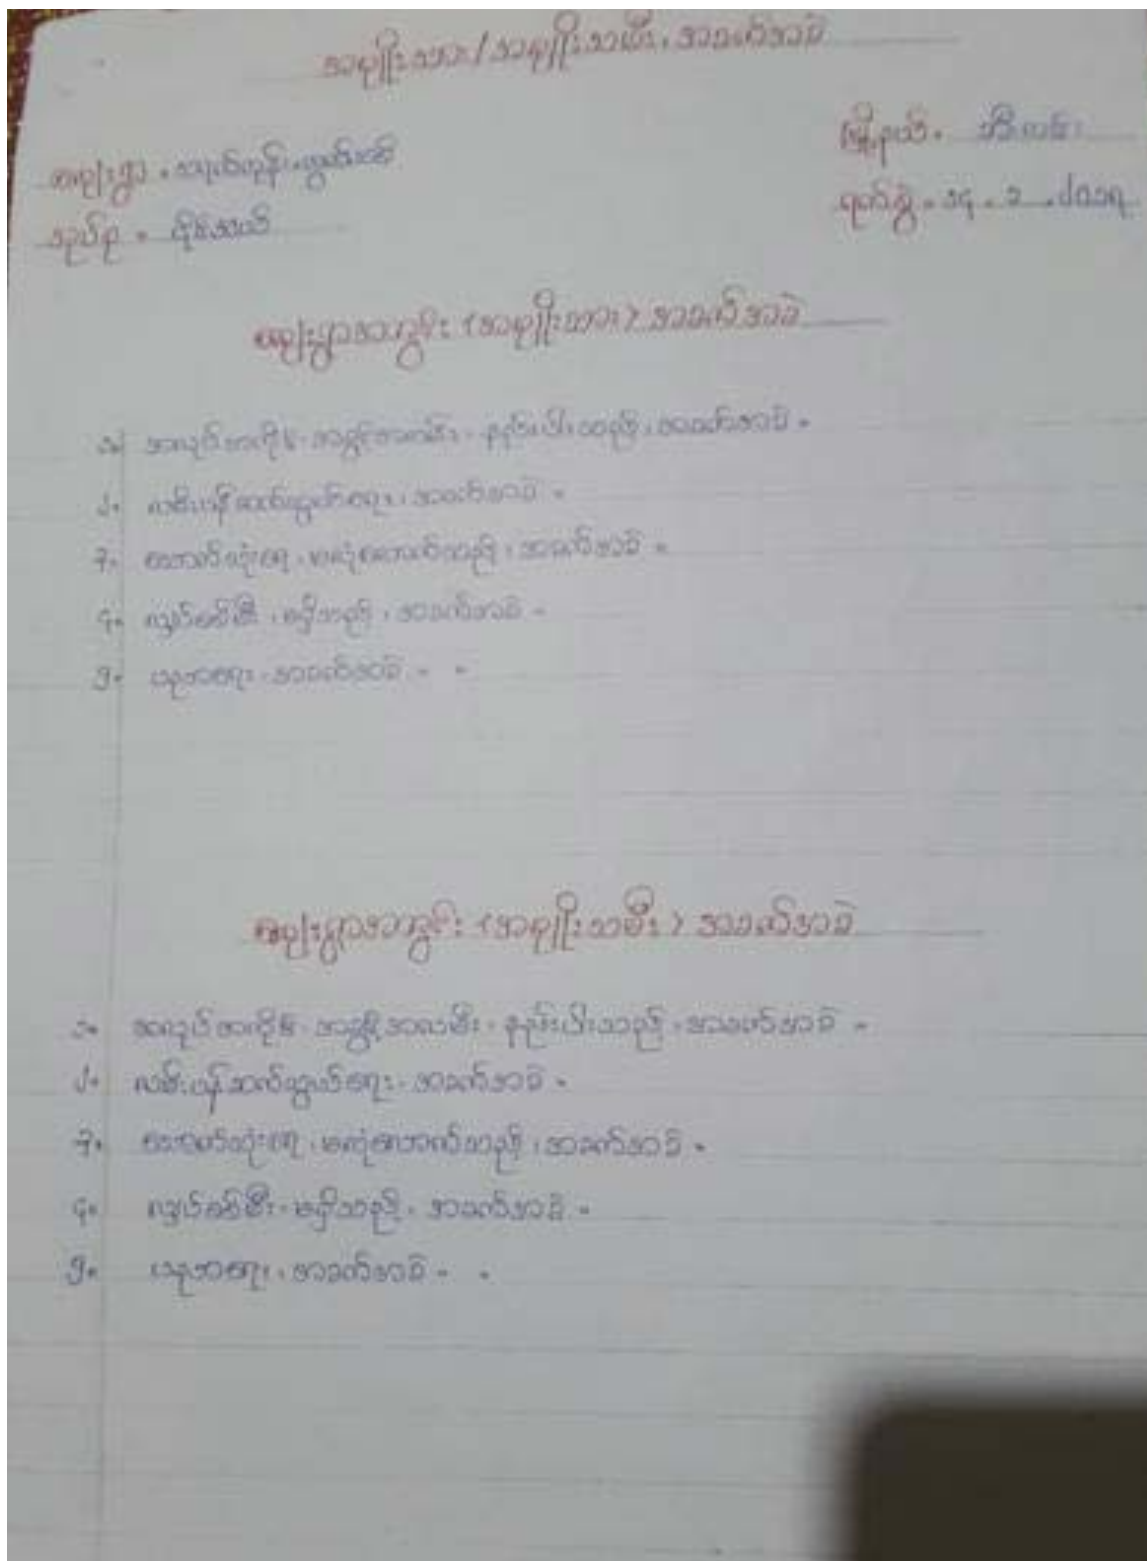 အမျိုးသား/အမျိုးသမီး၊ အခက်အခဲ
ကျေးရွာ
မြို့နယ်
အုပ်စု
ရက်စွဲ - ၁၄ - ၁ - ၂၀၁၇
ကျေးရွာအတွင်း (အမျိုးသား) အခက်အခဲ
၁။ အလုပ်အကိုင် အခွင့်အလမ်း နည်းပါးသည့် အခက်အခဲ။
၂။ လမ်းပန်းဆက်သွယ်ရေး၊ အခက်အခဲ။
၃။ သောက်သုံးရေ၊ မလုံလောက်သည့်၊ အခက်အခဲ။
၄။ လျှပ်စစ်မီး၊ မရှိသည့်၊ အခက်အခဲ။
၅။ ပညာရေး၊ အခက်အခဲ။ ။
ကျေးရွာအတွင်း (အမျိုးသမီး) အခက်အခဲ
၁။ အလုပ်အကိုင် အခွင့်အလမ်း နည်းပါးသည့် အခက်အခဲ။
၂။ လမ်းပန်းဆက်သွယ်ရေး၊ အခက်အခဲ။
၃။ သောက်သုံးရေ၊ မလုံလောက်သည့်၊ အခက်အခဲ။
၄။ လျှပ်စစ်မီး မရှိသည့်၊ အခက်အခဲ။
၅။ ပညာရေး၊ အခက်အခဲ။ ။